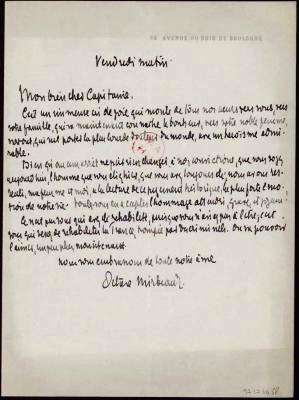 68 AVENUE DU BOIS DE BOULOGNE
Vendredi matin
Mon bien cher Capitaine.
C'est un immense cri de joie qui monte de tous nos cœurs vers vous, vers
votre famille, qui va maintenant connaître le bonheur, vers votre noble femme,
vers vous, qui avez porté la plus lourde douleur du monde, avec un héroïsme admi-
rable.
Bien qu'aucun arrêt ne puisse rien changer à nos convictions, que vous soyez
aujourd'hui l'homme que vous êtes, que vous avez toujours été, nous avons
ressenti, ma femme et moi, à la lecture de ce jugement historique, la plus forte émo-
tion de notre vie. Voulez-vous en accepter l'hommage attendri, grave, et joyeux
Ce n'est pas vous qui avez été réhabilité, puisque vous n'aviez pas à l'être, c'est
vous qui venez de réhabiliter la France, trompée par des criminels. On va pouvoir
l'aimer, un peu plus maintenant.
nous vous embrassons de toute notre âme
Octave Mirbeau